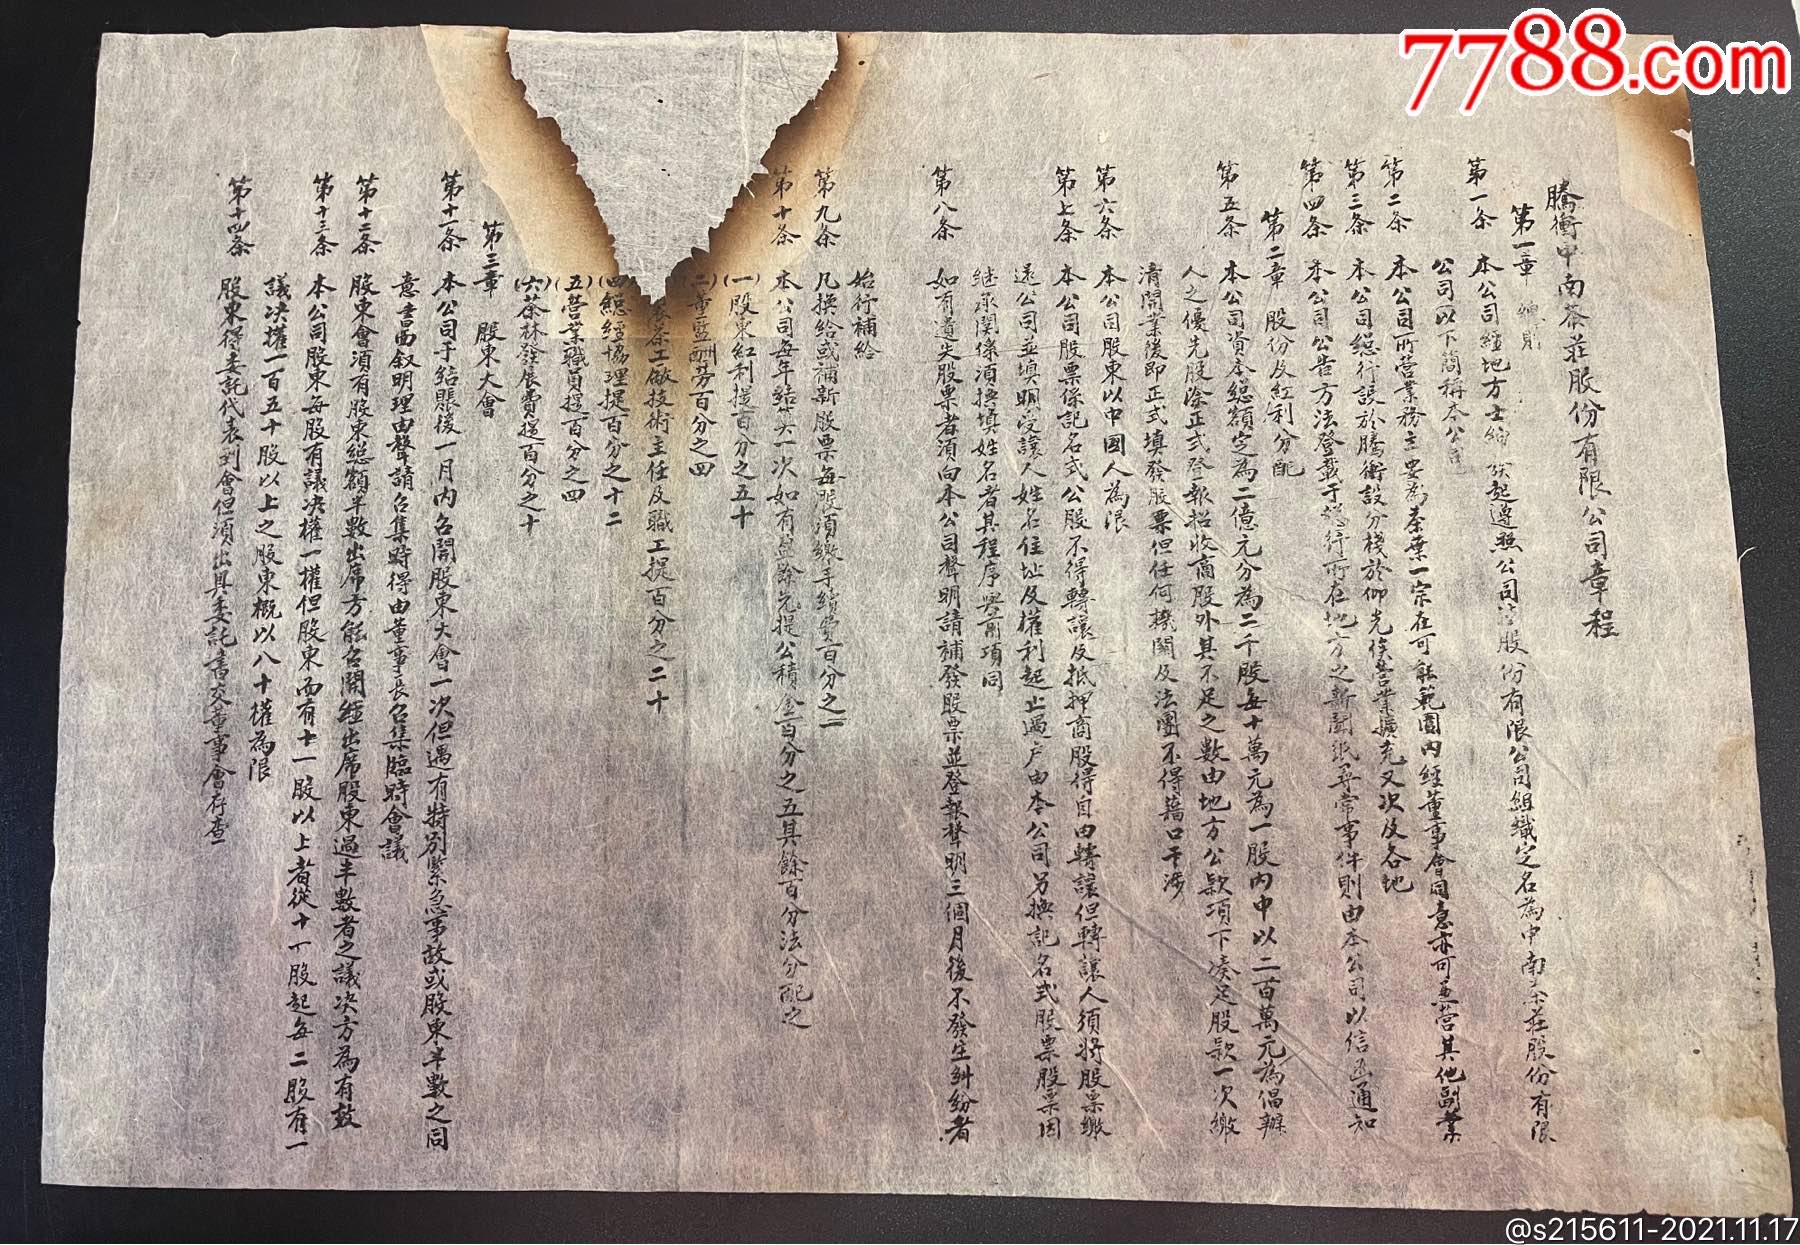 7788.com
騰衝中南茶莊股份有限公司章程
第一章 總則
第一条 本公司經地方士紳 發起遵照公司法股份有限公司組織定名為中南茶莊股份有限
公司以下簡稱本公司
第二条 本公司所營業務主要為茶葉一宗在可能範圍内經董事會同意亦可兼营其他副業
第三条 本公司總行設於騰衝設分棧於仰光俟營業擴充又次及各地
第四条 本公司公告方法登載于總行所在地方之新聞纸尋常事件則由本公司以信函通知
第二章 股份及紅利分配
第五条 本公司資本總額定為二億元分為二千股每十萬元為一股内中以二百萬元為倡辦
人之優先股除正式登報招收商股外其不足之數由地方公款項下凑足股款一次繳
清開業後即正式填發股票但任何機關及法團不得藉口干涉
第六条 本公司股東以中國人為限
第七条 本公司股票係記名式公股不得轉讓及抵押商股得自由轉讓但轉讓人须将股票繳
还公司並填明受讓人姓名住址及權利起止過户由本公司另换記名式股票股票因
继承関係須换填姓名者其程序與前項同
第八条 如有遺失股票者須向本公司聲明請補發股票並登報聲明三個月後不發生糾紛者
始行補給
第九条 凡换给或補新股票每股須繳手續費百分之二
第十条 本公司每年结算一次如有盈餘先提公積金百分之五其餘百分法分配之
(一)股東紅利提百分之五十
(二)董監酬劳百分之四
製茶工廠技術主任及職工提百分之二十
(四)總經協理提百分之十二
(五)营業職員提百分之四
(六)茶林發展費提百分之十
第三章 股東大會
第十一条 本公司于结賬後一月内召開股東大會一次但遇有特别緊急事故或股東半數之同
意書面叙明理由聲請召集時得由董事長召集臨時會議
第十二条 股東會須有股東總額半數出席方能召開經出席股東過半數者之議决方為有效
第十三条 本公司股東每股有議决權一權但股東而有十一股以上者從十一股起每二股有一
議决權一百五十股以上之股東概以八十權為限
第十四条 股東得委託代表到會但須出具委託書交董事會存查
@s215611-2021.11.17